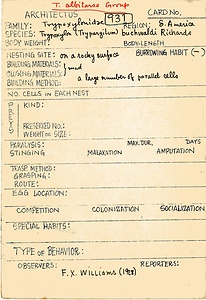 T. albitarse Group
ARCHITECTUS 931 CARD NO.
FAMILY: Trypoxylonidae REGION: S. America
SPECIES: Trypoxylon (Trypargilum) buchwaldi Richards
BODY WEIGHT: BODY LENGTH
NESTING SITE: on a rocky surface BURROWING HABIT (-)
BUILDING MATERIALS: mud
CLOSING MATERIALS:
BUILDING METHOD: a large number of parallel cells
NO. CELLS IN EACH NEST
PREY
KIND:
PRESERVED NO.:
WEIGHT OR SIZE:
PARALYSIS: MAX. DUR. DAYS
STINGING MALAXATION AMPUTATION
TRANSP. METHOD:
GRASPING:
ROUTE:
EGG LOCATION:
COMPETITION COLONIZATION SOCIALIZATION
SPECIAL HABITS:
TYPE OF BEHAVIOR:
OBSERVERS: REPORTERS:
F.X. Williams